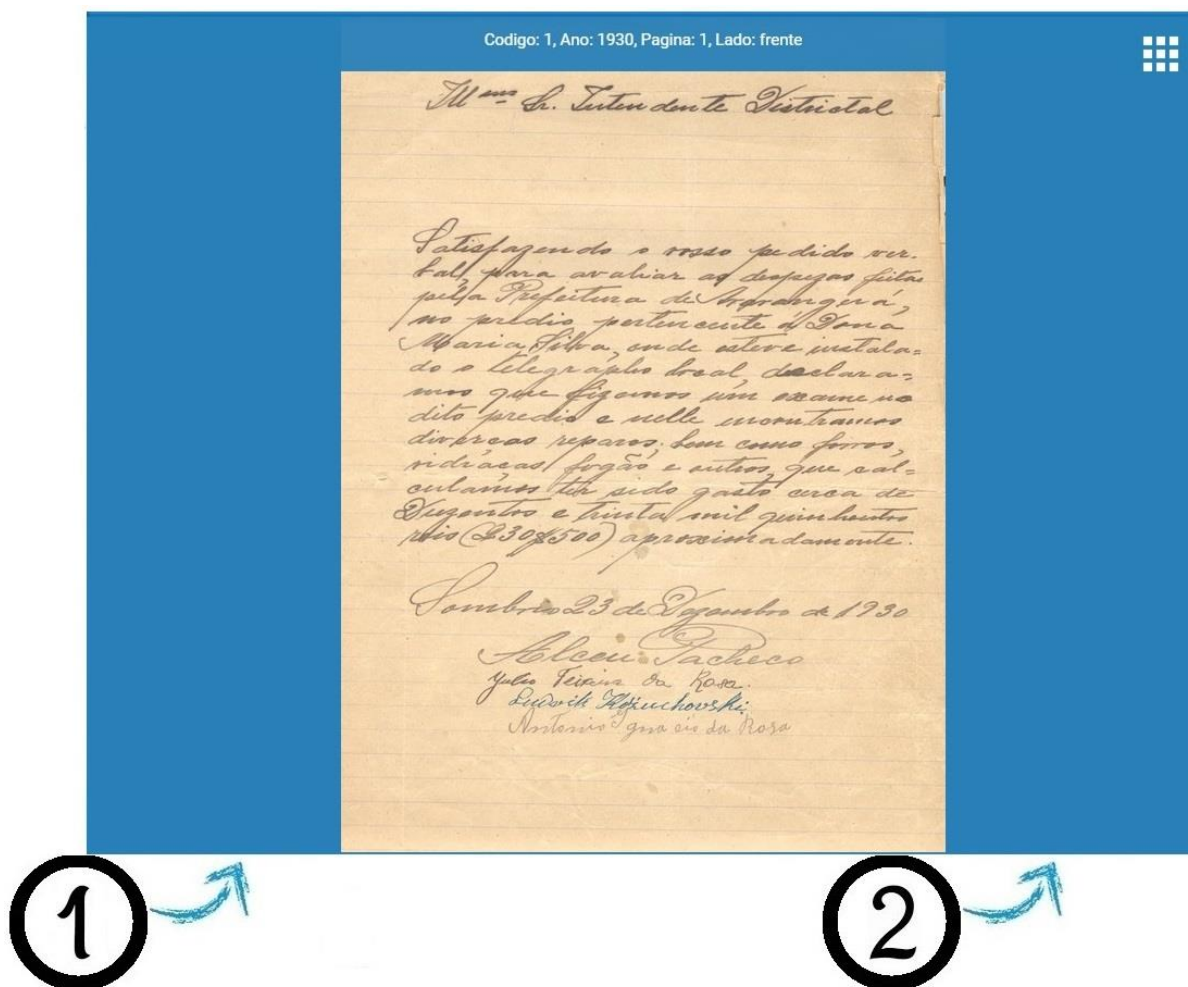 Codigo: 1, Ano: 1930, Pagina: 1, Lado: frente
Illmo Sr. Intendente Districtal
Satisfazendo o vosso pedido ver-
bal, para avaliar as despezas feitas
pela Prefeitura de Araranguá,
no predio pertencente á Dona
Maria Silva, onde esteve instala=
do o telegrapho local, declara=
mos que fizemos um exame no
dito predio e nelle encontramos
diversos reparos, bem como forros,
vidraças, fogão e outros, que cal=
culamos ter sido gasto cerca de
Duzentos e trinta mil quinhentos
reis (230$500) aproximadamente.
Sombrio 23 de Dezembro de 1930
Alceu Pacheco
Julio Teixeira da Rosa.
Ludovik Kozuchovski
Antonio Ignacio da Rosa
1
2